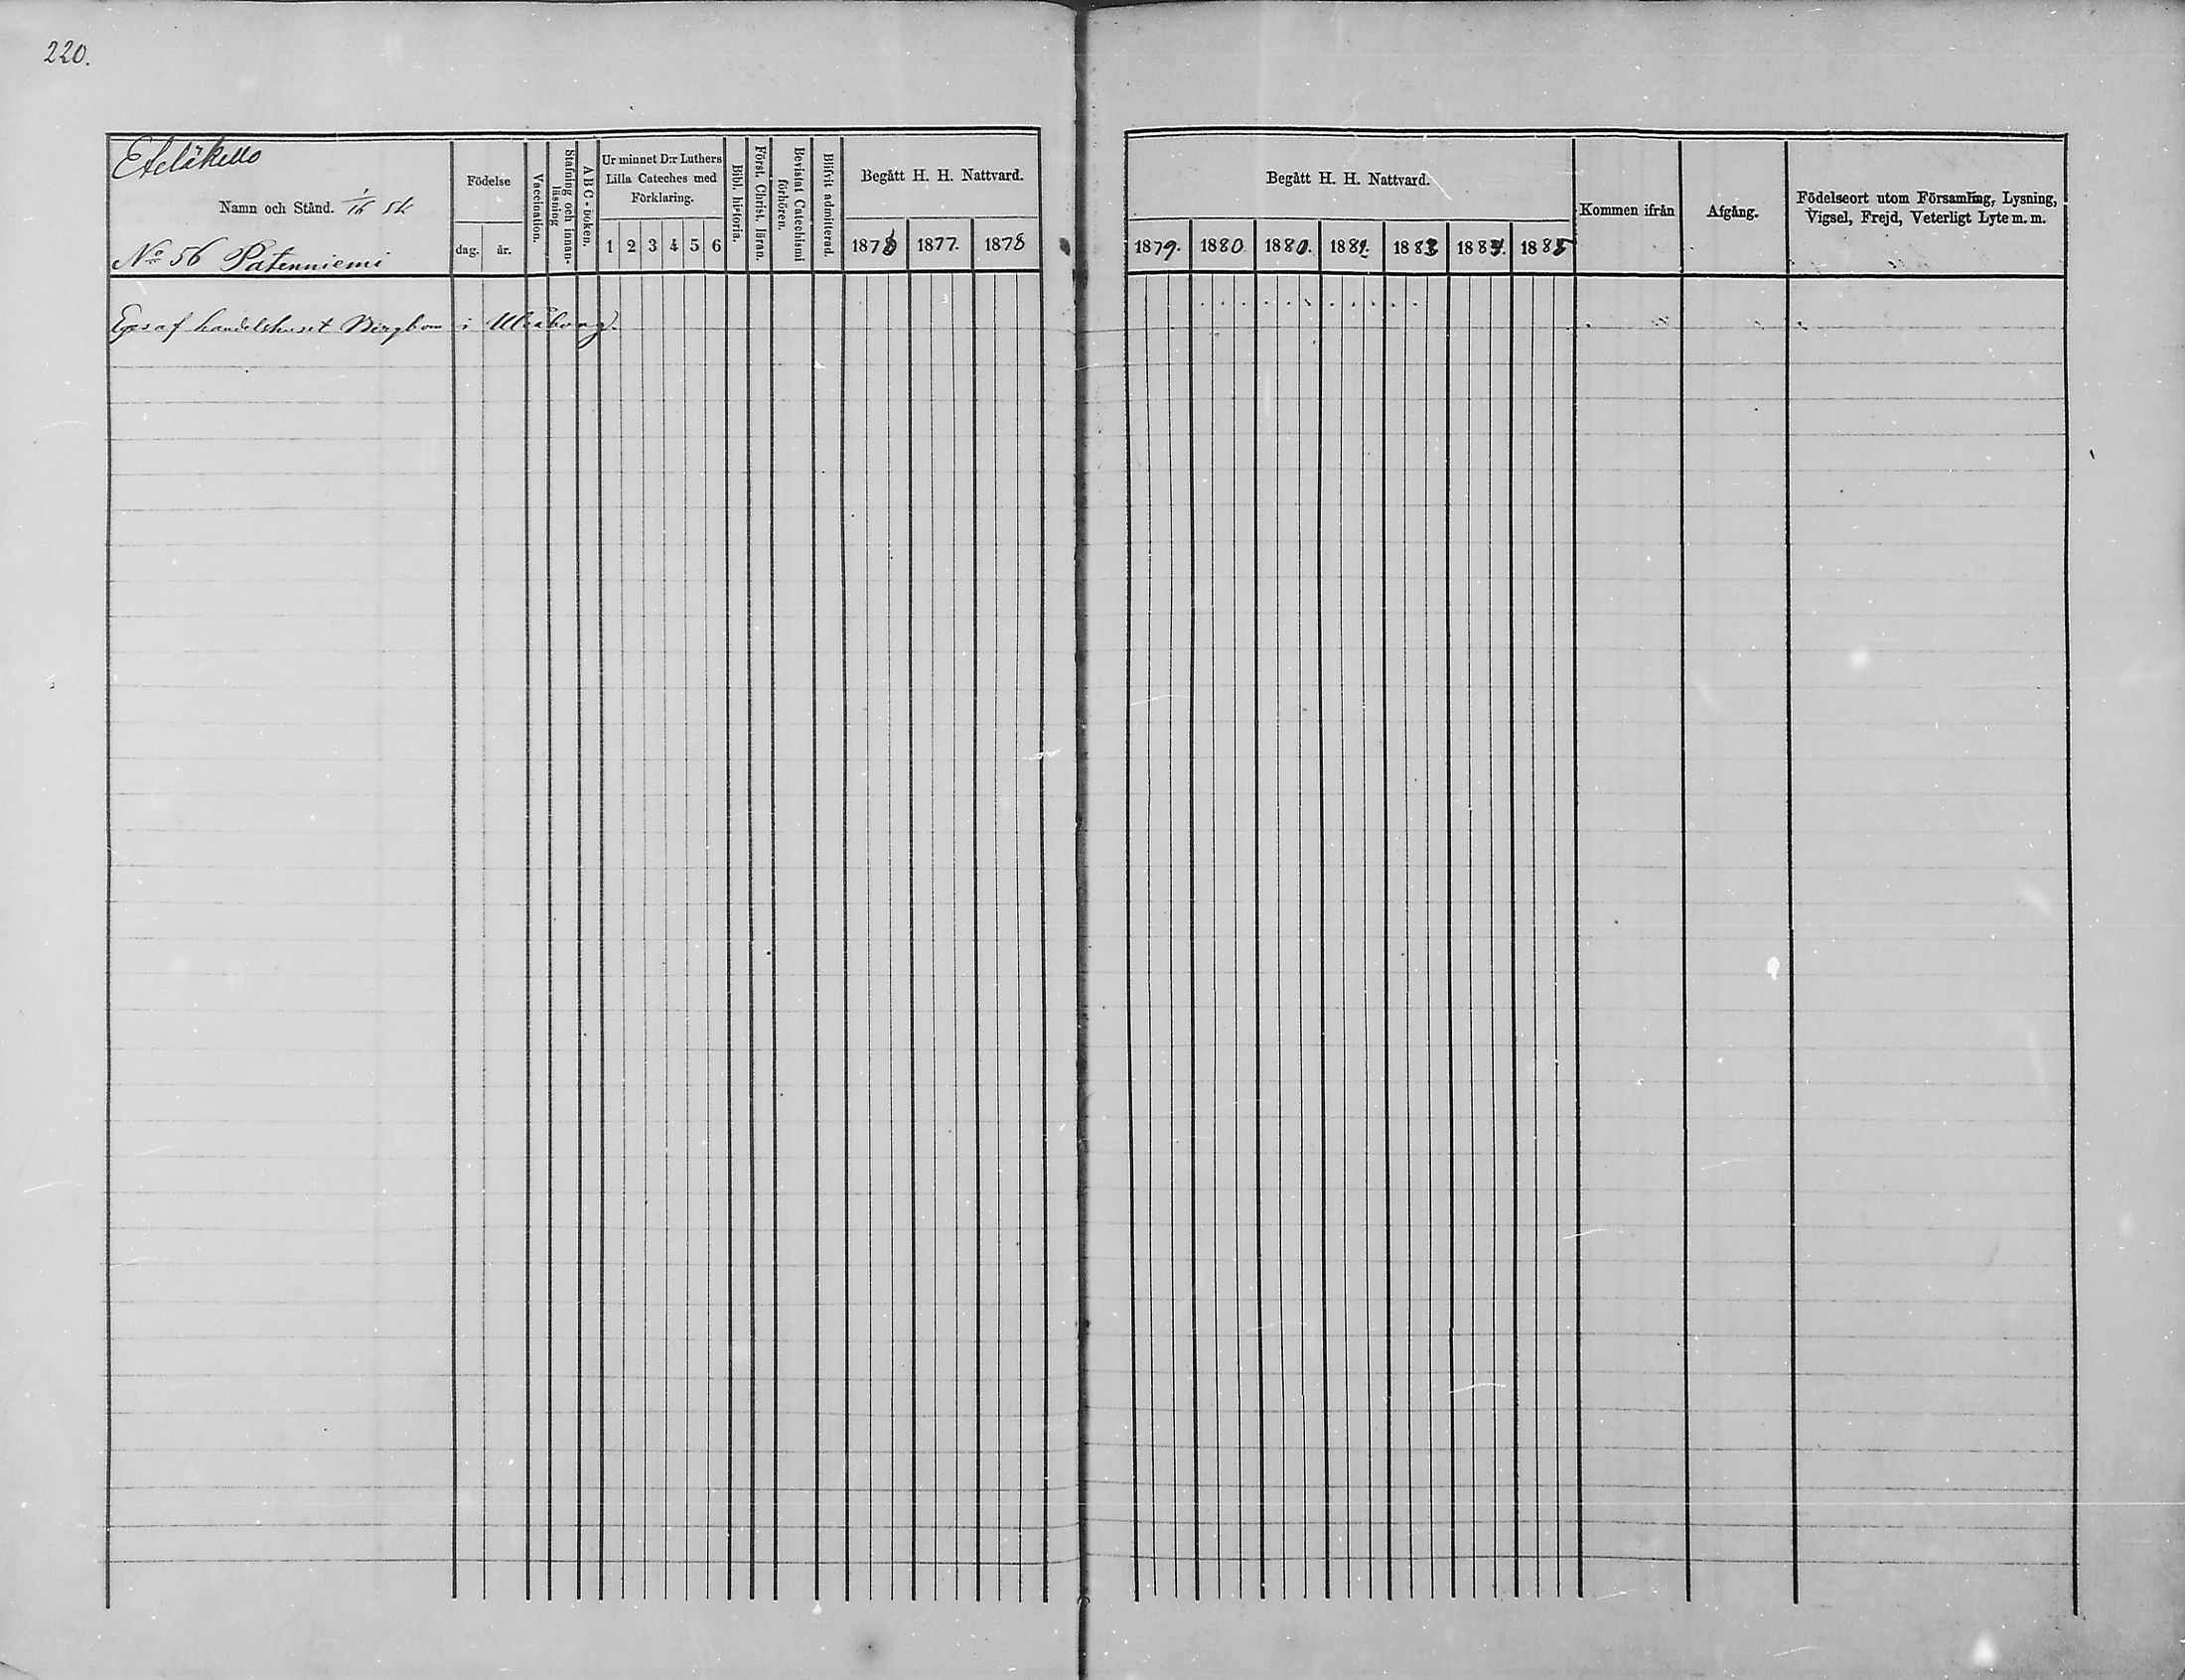 220.
Eteläkello
Namn och Stånd. 1/16 sk
No 56 Patenniemi
Födelse
dag. år.
Vaccination.
Stafning och innan-
läsning
ABC-boken.
Ur minnet D:r Luthers
Lilla Cateches med
Förklaring.
1 2 3 4 5 6
Bibl. historia.
Först. Christ. läran.
Bevistat Catechismi
förhören.
Blifvit admitterad.
Begått H. H. Nattvard.
1876 1877. 1878
Eges af handelshuset Bergbom i Uleåborg.
Begått H. H. Nattvard.
1879. 1880 1880. 1882. 1883 1884. 1885
Kommen ifrån
Afgång.
Födelseort utom Församling, Lysning,
Vigsel, Frejd, Veterligt Lyte m. m.